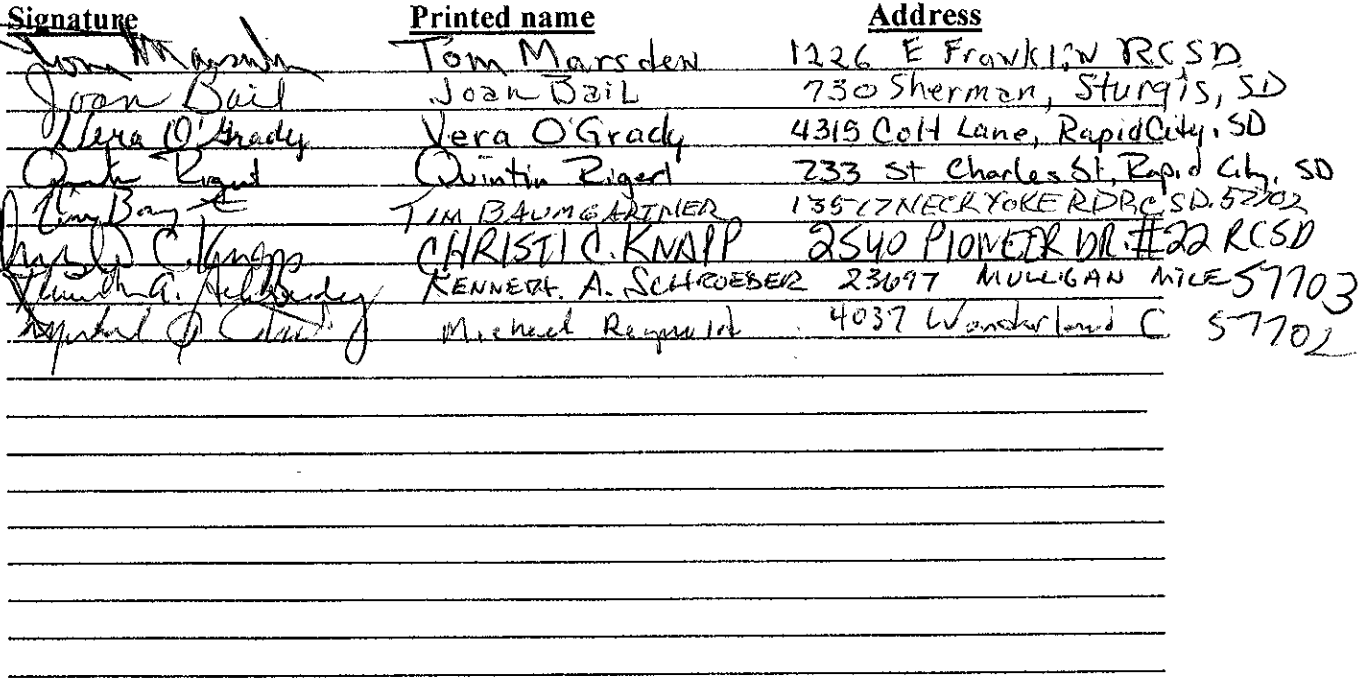 Signature Printed name Address
Tom Marsden Tom Marsden 1226 E Franklin RCSD
Joan Bail Joan Bail 730 Sherman, Sturgis, SD
Vera O'Grady Vera O'Grady 4315 Colt Lane, Rapid City, SD
Quintin Rigert 233 St Charles St, Rapid City, SD
TIM BAUMGARTNER 13517 NECK YOKE RD RC SD. 57702
C. Knapp CHRISTI C. KNAPP 2540 PIONEER DR. #22 RCSD
KENNETH. A. SCHROEDER 23697 MULLIGAN MILE 57703
Michael 4037 Wonderland C 57702